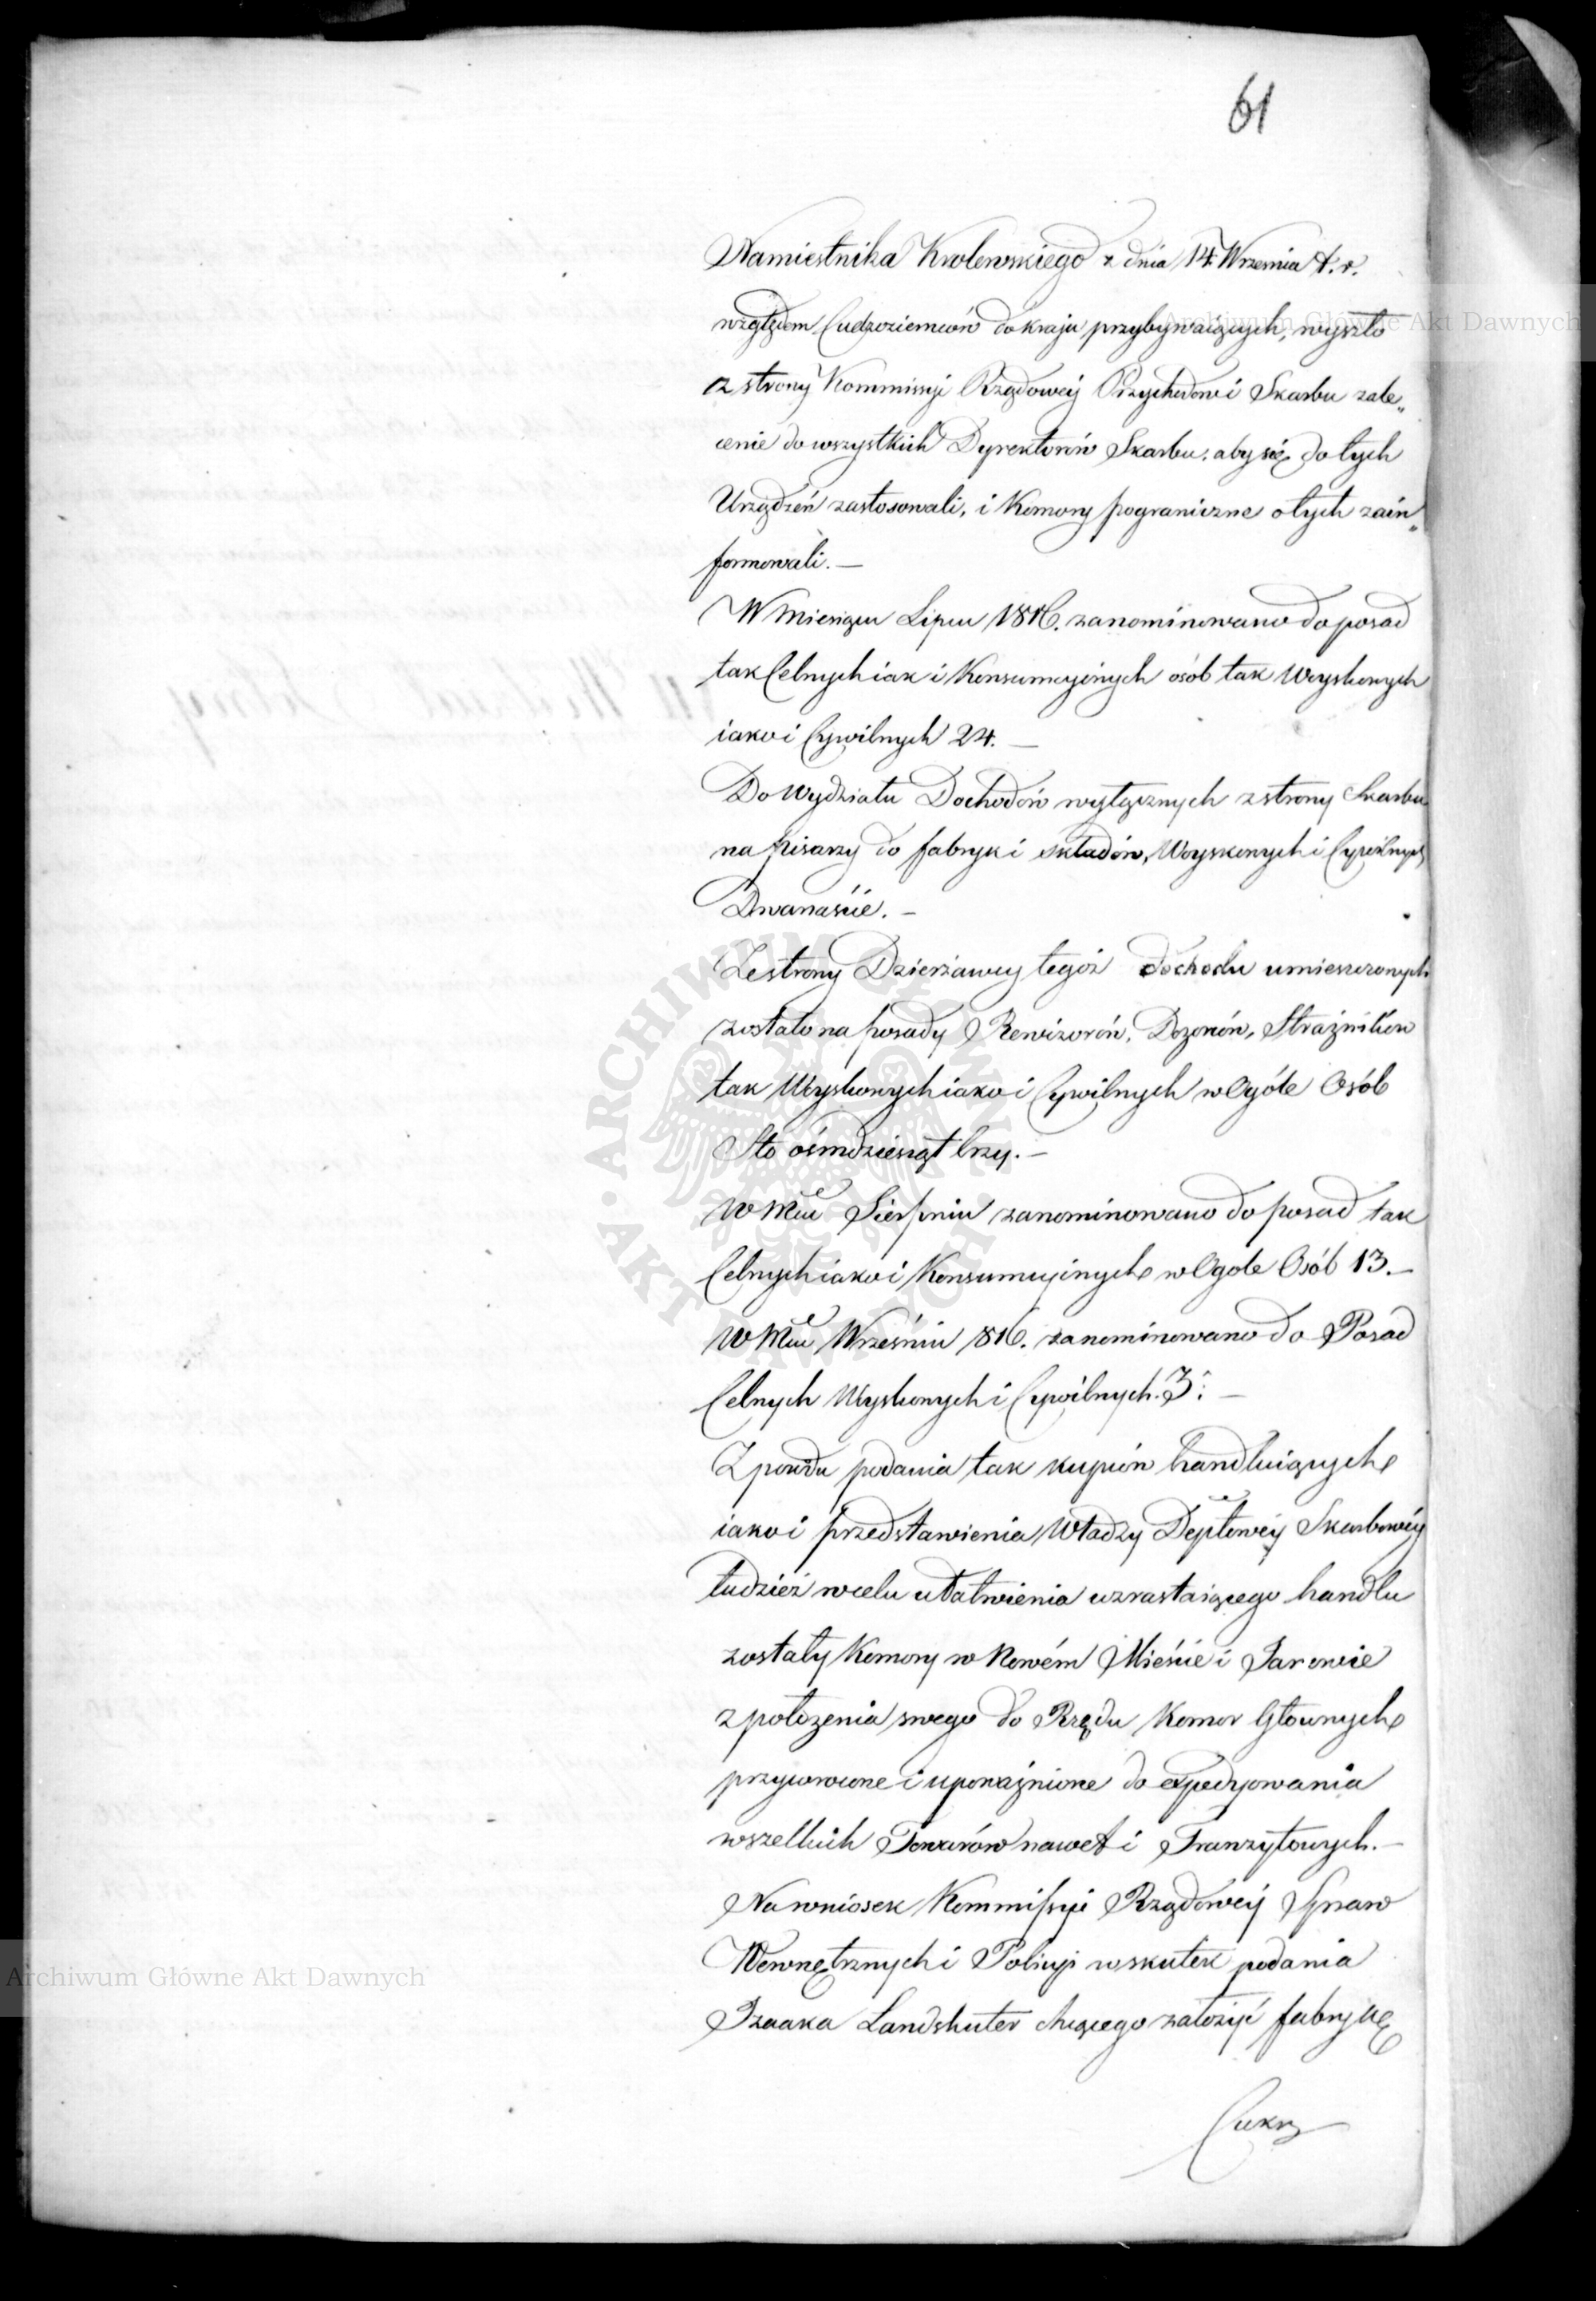 61
Namiestnika Krolewskiego z dnia 14 Wrzesnia t. r.
względem Cudzoziemców do kraju przybywaiących, wyszło
z strony Kommissyi Rządowéy Przychodów i Skarbu zale„
cenie do wszystkich Dyrektorów Skarbu, aby się do tych
Urządzeń zastosowali, i Komory pograniczne o tych zain„
formowali. —
W Miesiącu Lipcu 1816. zanominowano do posad
tak Celnych iak i Konsumcyinych osób tak Woyskowych
iako i Cywilnych 24. —
Do Wydziału Dochodów wyłącznych z strony Skarbu
na Pisarzy do fabryk i składów, Woyskowych i Cywilnych
Dwanaście. —
Ze strony Dzierżawcy tegóż dochodu umieszczonych
zostało na posady Rewizorów, Dozorców, Strażników
tak Woyskowych iako i Cywilnych w Ogóle Osób
Sto ośmdziesiąt trzy. —
W Mcu Sierpniu zanominowano do posad tak
Celnych iako i Konsumcyinych w Ogole Osób 13. —
W Mcu Wrześniu 816. zanominowano do Posad
Celnych Woyskowych i Cywilnych. 3. —
Z powodu podania tak kupców handluiących
iako i przedstawienia Władzy Deptowéy Skarbowéy
tudzież w celu ułatwienia wzrastaiącego handlu
zostały Komory w Nowém Mieście i
z położenia swego do Rzędu Komor Głownych
przywrocone i upoważnione do expedyowania
wszelkich Towarów nawet i Tranzytowych. —
Na wniosek Kommissyi Rządowéy Spraw
Wewnętrznych i Policyi w skutek podania
Izaaka Landshuter chcącego założyć fabrykę
Cukru
Archiwum Główne Akt Dawnych
Archiwum Główne Akt Dawnych
ARCHIWUM GŁÓWNE AKT DAWNYCH